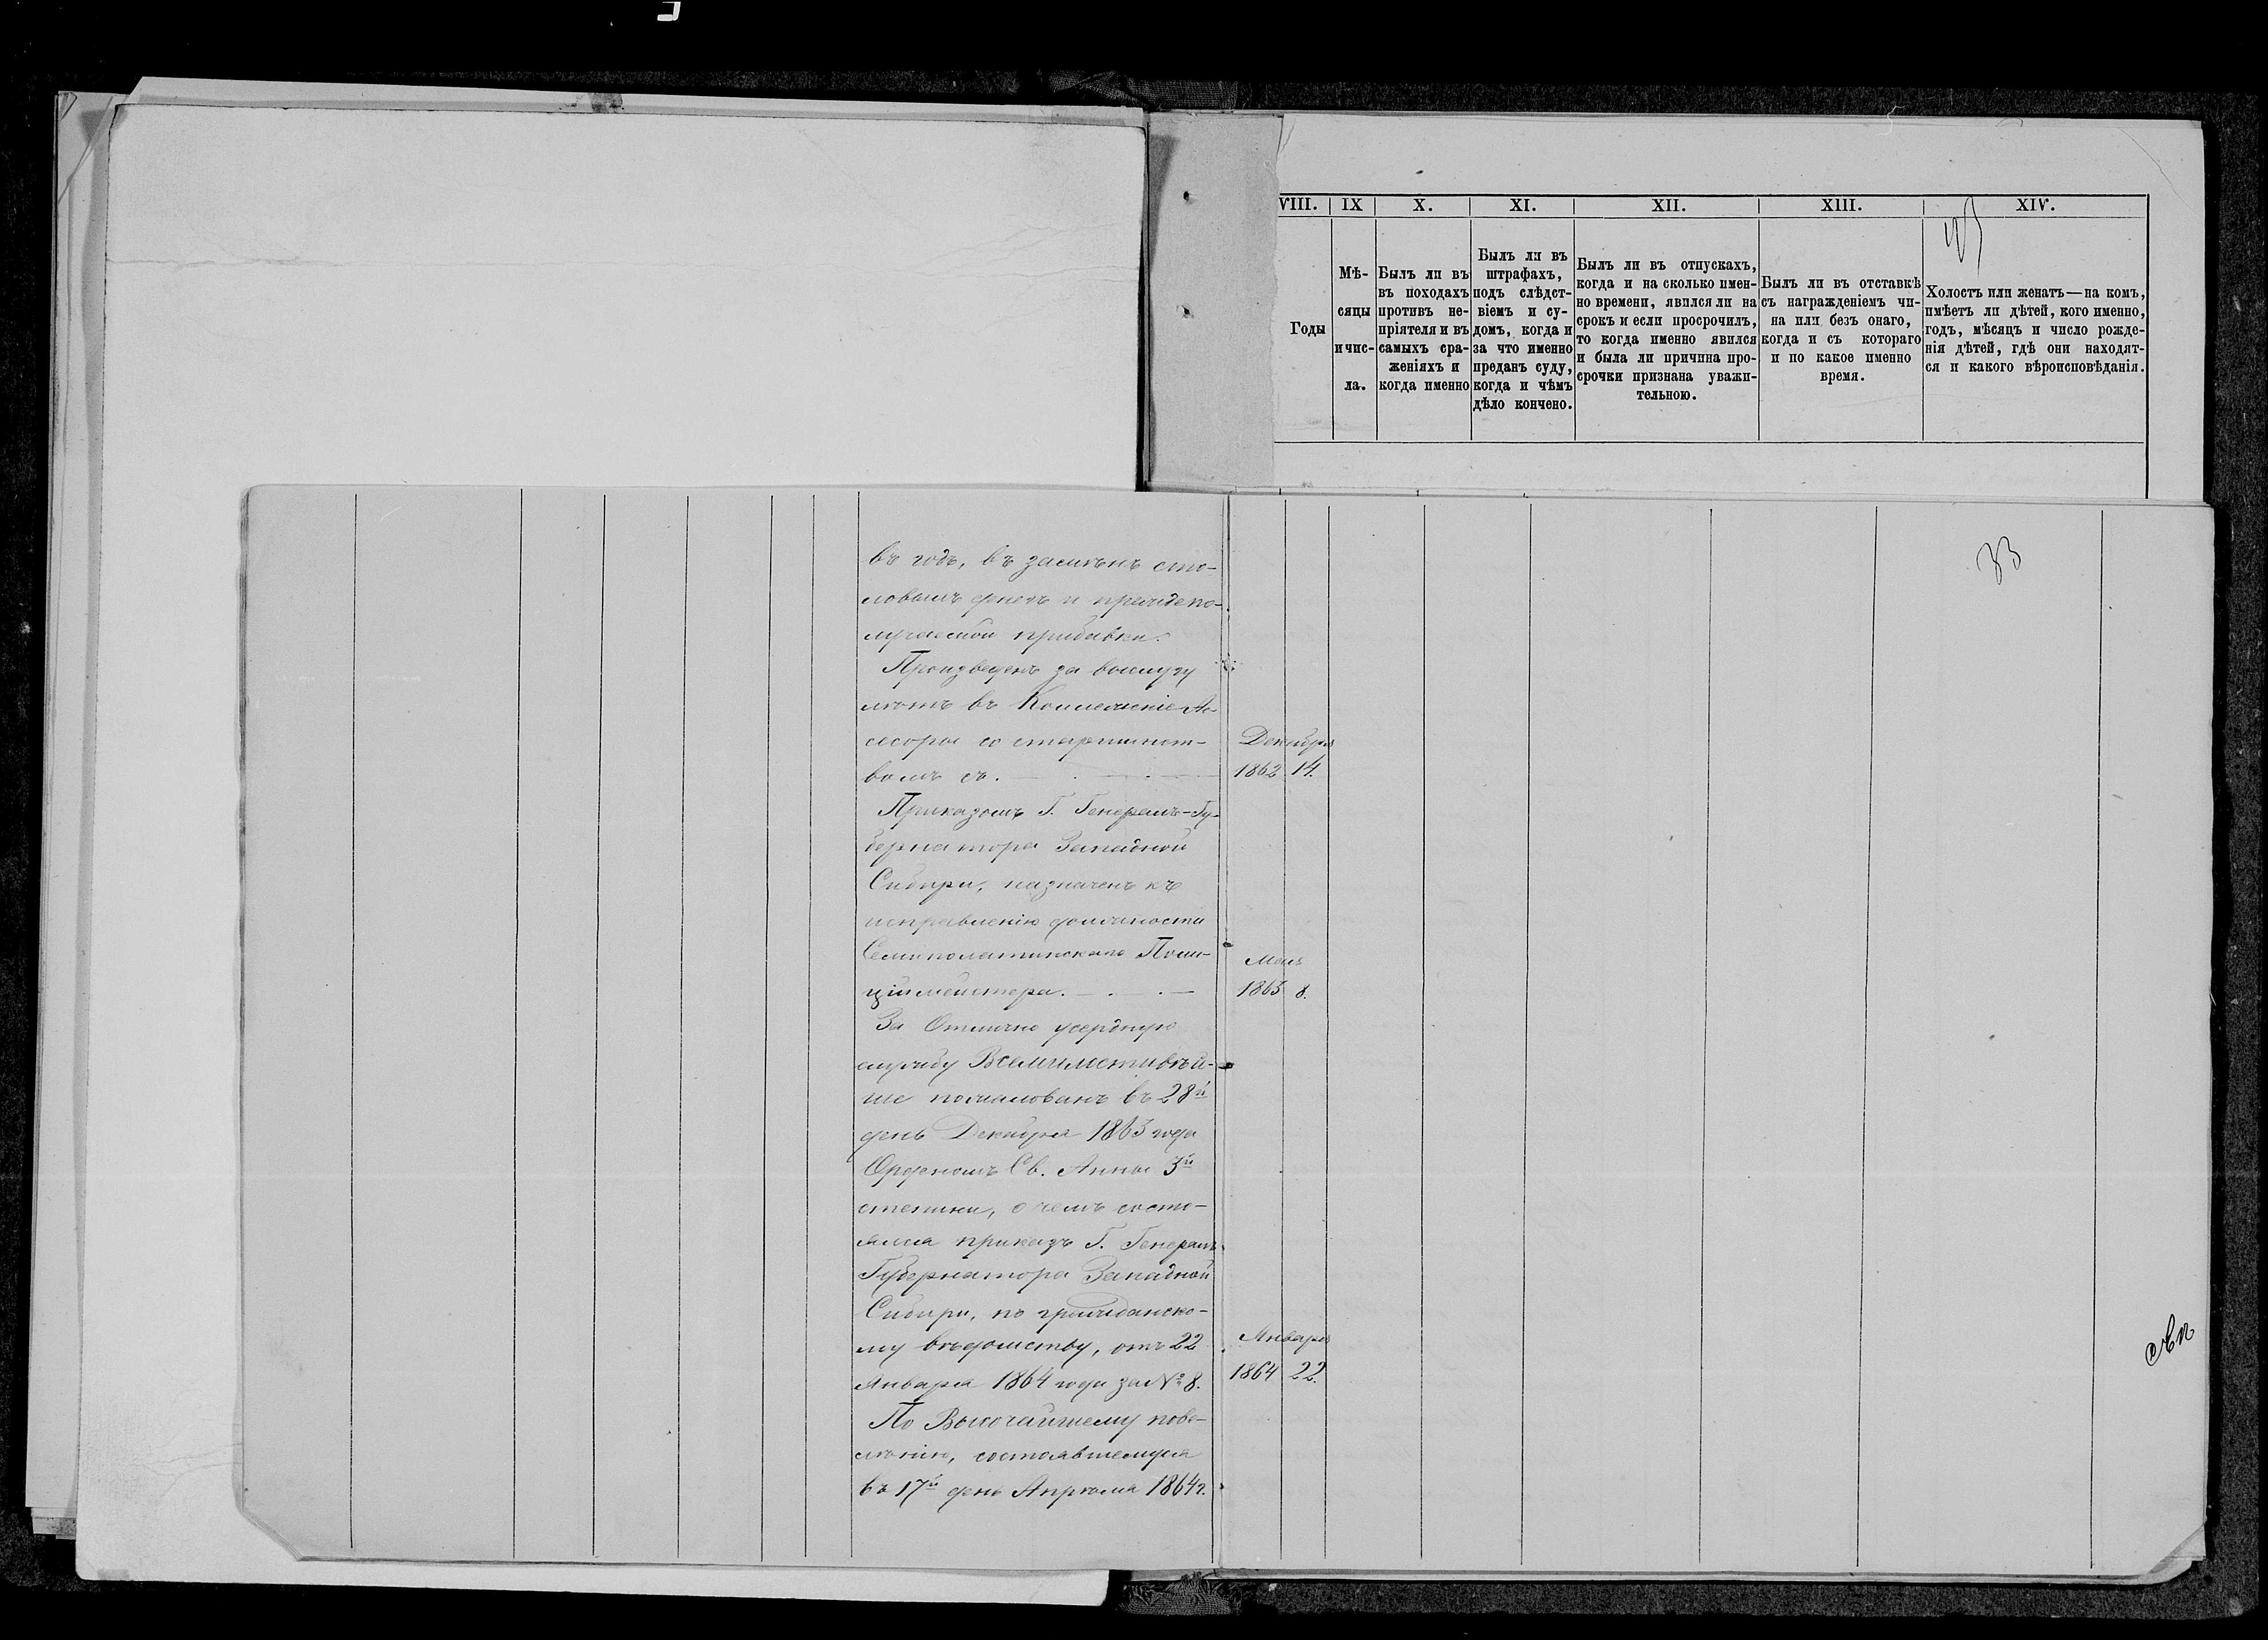 VIII. IX X. XI. XII. XIII. XIV.
Годы
Мѣ-
сяцы
и чис-
ла.
Былъ ли въ
въ походахъ
противъ не-
пріятеля и въ
самыхъ сра-
женіяхъ и
когда именно
Былъ ли въ
штрафахъ,
подъ слѣдст-
віемъ и су-
домъ, когда и
за что именно
преданъ суду,
когда и чѣмъ
дѣло кончено.
Былъ ли въ отпускахъ,
когда и на сколько имен-
но времени, явился ли на
срокъ и если просрочилъ,
то когда именно явился
и была ли причина про-
срочки признана уважи-
тельною.
Былъ ли въ отставкѣ
съ награжденіемъ чи-
на или безъ онаго,
когда и съ котораго
и по какое именно
время.
Холостъ или женатъ—на комъ,
имѣетъ ли дѣтей, кого именно,
годъ, мѣсяцъ и число рожде-
нія дѣтей, гдѣ они находят-
ся и какого вѣроисповѣданія.
33
въ годъ, въ замѣнъ сто-
ловыхъ денегъ и преждепо-
лучаемой прибавки.
Произведенъ за выслугу
лѣтъ въ Коллежскіе Ас-
сесоры со старшинст-
вомъ съ.
Декабря
1862 14.
Приказомъ Г. Генералъ-Гу-
бернатора Западной
Сибири, назначенъ къ
исправленію должности
Семипалатинскаго Поли-
ційместера.
Мая
1863 8.
За Отлично усердную
службу Всемилостивѣй-
ше пожалованъ въ 28й
день Декабря 1863 года
Орденомъ Св. Анны 3й
степени, о чемъ состо-
ялся приказъ Г. Генералъ
Губернатора Западной
Сибири, по гражданско-
му вѣдомству, отъ 22
Января 1864 года за № 8.
Января
1864 22.
По Высочайшему пове-
лѣнію, состоявшемуся
въ 17й день Апрѣля 1864 г.